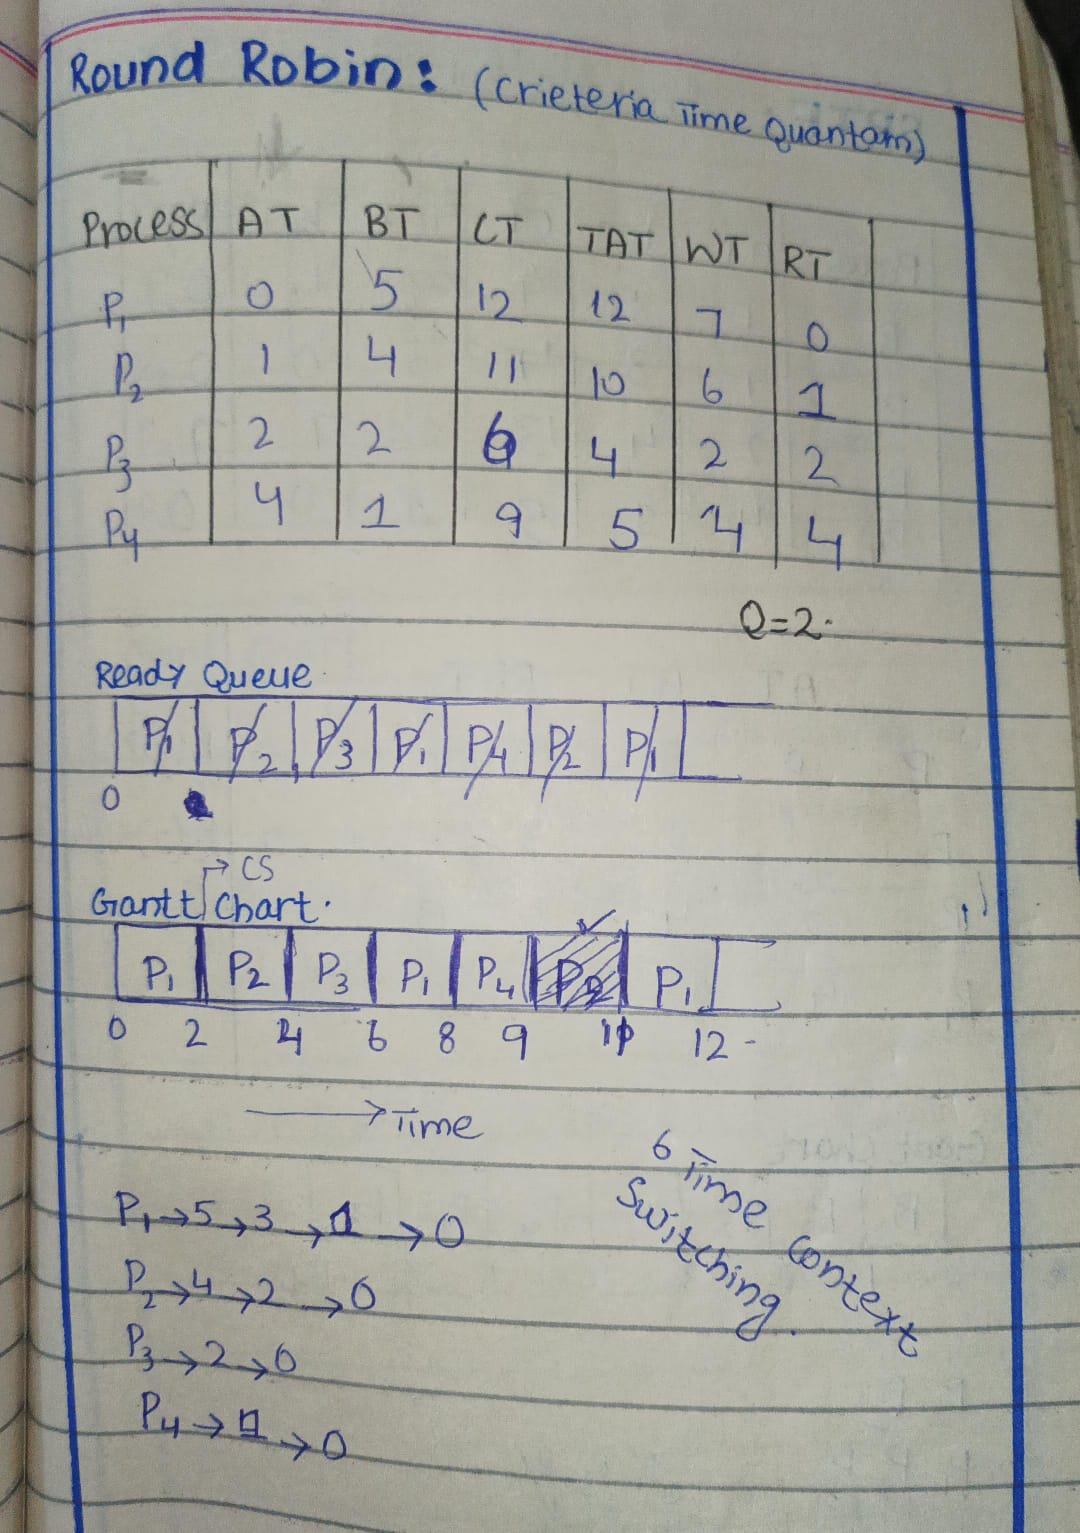 Round Robin: (Crieteria Time Quantam)
Process AT BT CT TAT WT RT
P1 0 5 12 12 7 0
P2 1 4 11 10 6 1
P3 2 2 6 4 2 2
P4 4 1 9 5 4 4
Q=2.
Ready Queue
P1 P2 P3 P1 P4 P2 P1
0
→ CS
Gantt Chart.
P1 P2 P3 P1 P4 P2 P1
0 2 4 6 8 9 11 12 -
→ Time
6 Time Context
Switching.
P1→5→3→1→0
P2→4→2→0
P3→2→0
P4→1→0